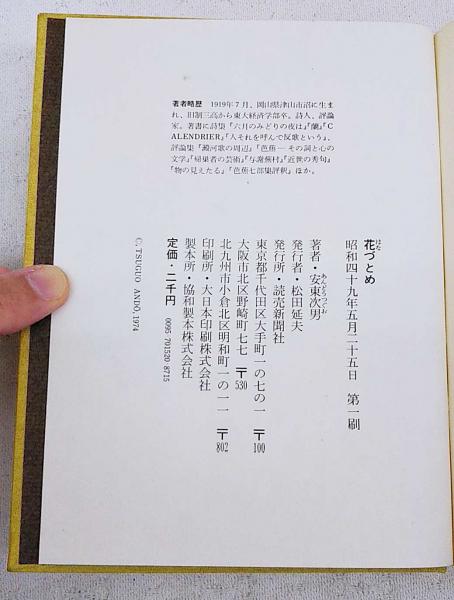 著者略歴 1919年7月、岡山県津山市沼に生ま
れ、旧制三高から東大経済学部卒。詩人、評論
家。著書に詩集『六月のみどりの夜は』『蘭』『C
ALENDRIER』『人それを呼んで反歌という』、
評論集『澱河歌の周辺』『芭蕉―その詞と心の
文学』『帰巣者の芸術』『与謝蕪村』『近世の秀句』
『物の見えたる』『芭蕉七部集評釈』ほか。
花づとめ
はな
昭和四十九年五月二十五日 第一刷
著者・安東次男
あんどうつぐお
発行者・松田延夫
発行所・読売新聞社
東京都千代田区大手町一の七の一 〒100
大阪市北区野崎町七七 〒530
北九州市小倉北区明和町一の一一 〒802
印刷所・大日本印刷株式会社
製本所・協和製本株式会社
定価・二千円 0095 701520 8715
C; TSUGUO ANDŌ, 1974